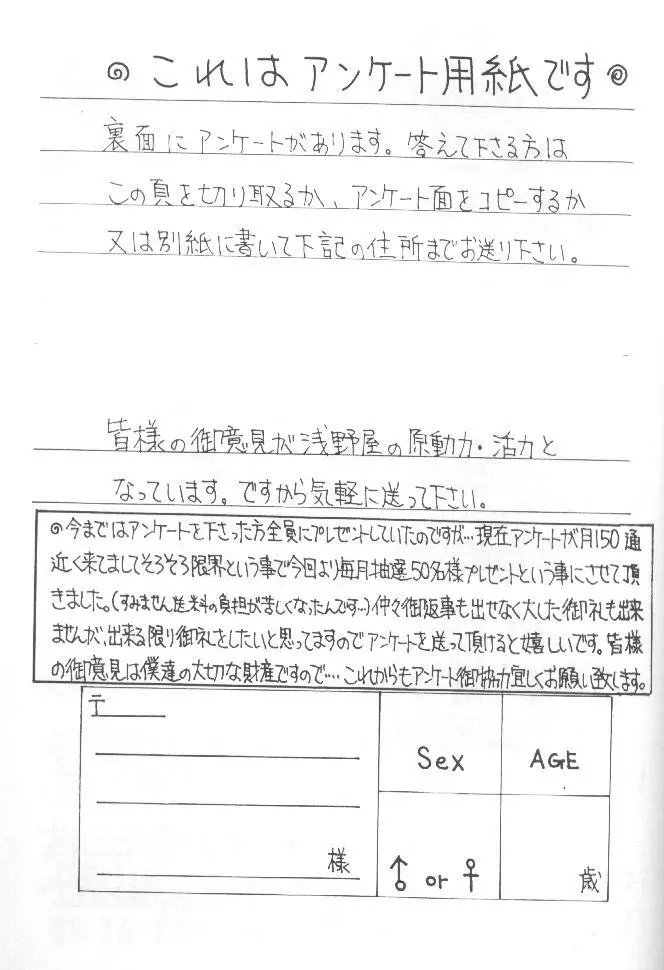 これはアンケート用紙です
裏面にアンケートがあります。答えて下さる方は
この頁を切り取るか、アンケート面をコピーするか
又は別紙に書いて下記の住所までお送り下さい。
皆様の御意見が浅野屋の原動力・活力と
なっています。ですから気軽に送って下さい。
◎今まではアンケートを下さった方全員にプレゼントしていたのですが…現在アンケートが月150通
近く来てましてそろそろ限界という事で今回より毎月抽選50名様プレゼントという事にさせて頂
きました。(すみません送料の負担が苦しくなったんです…)仲々御返事も出せなく大した御礼も出来
ませんが、出来る限り御礼をしたいと思ってますのでアンケートを送って頂けると嬉しいです。皆様
の御意見は僕達の大切な財産ですので…これからもアンケート御協力宜しくお願い致します。
〒
Sex AGE
様 ♂ or ♀ 歳